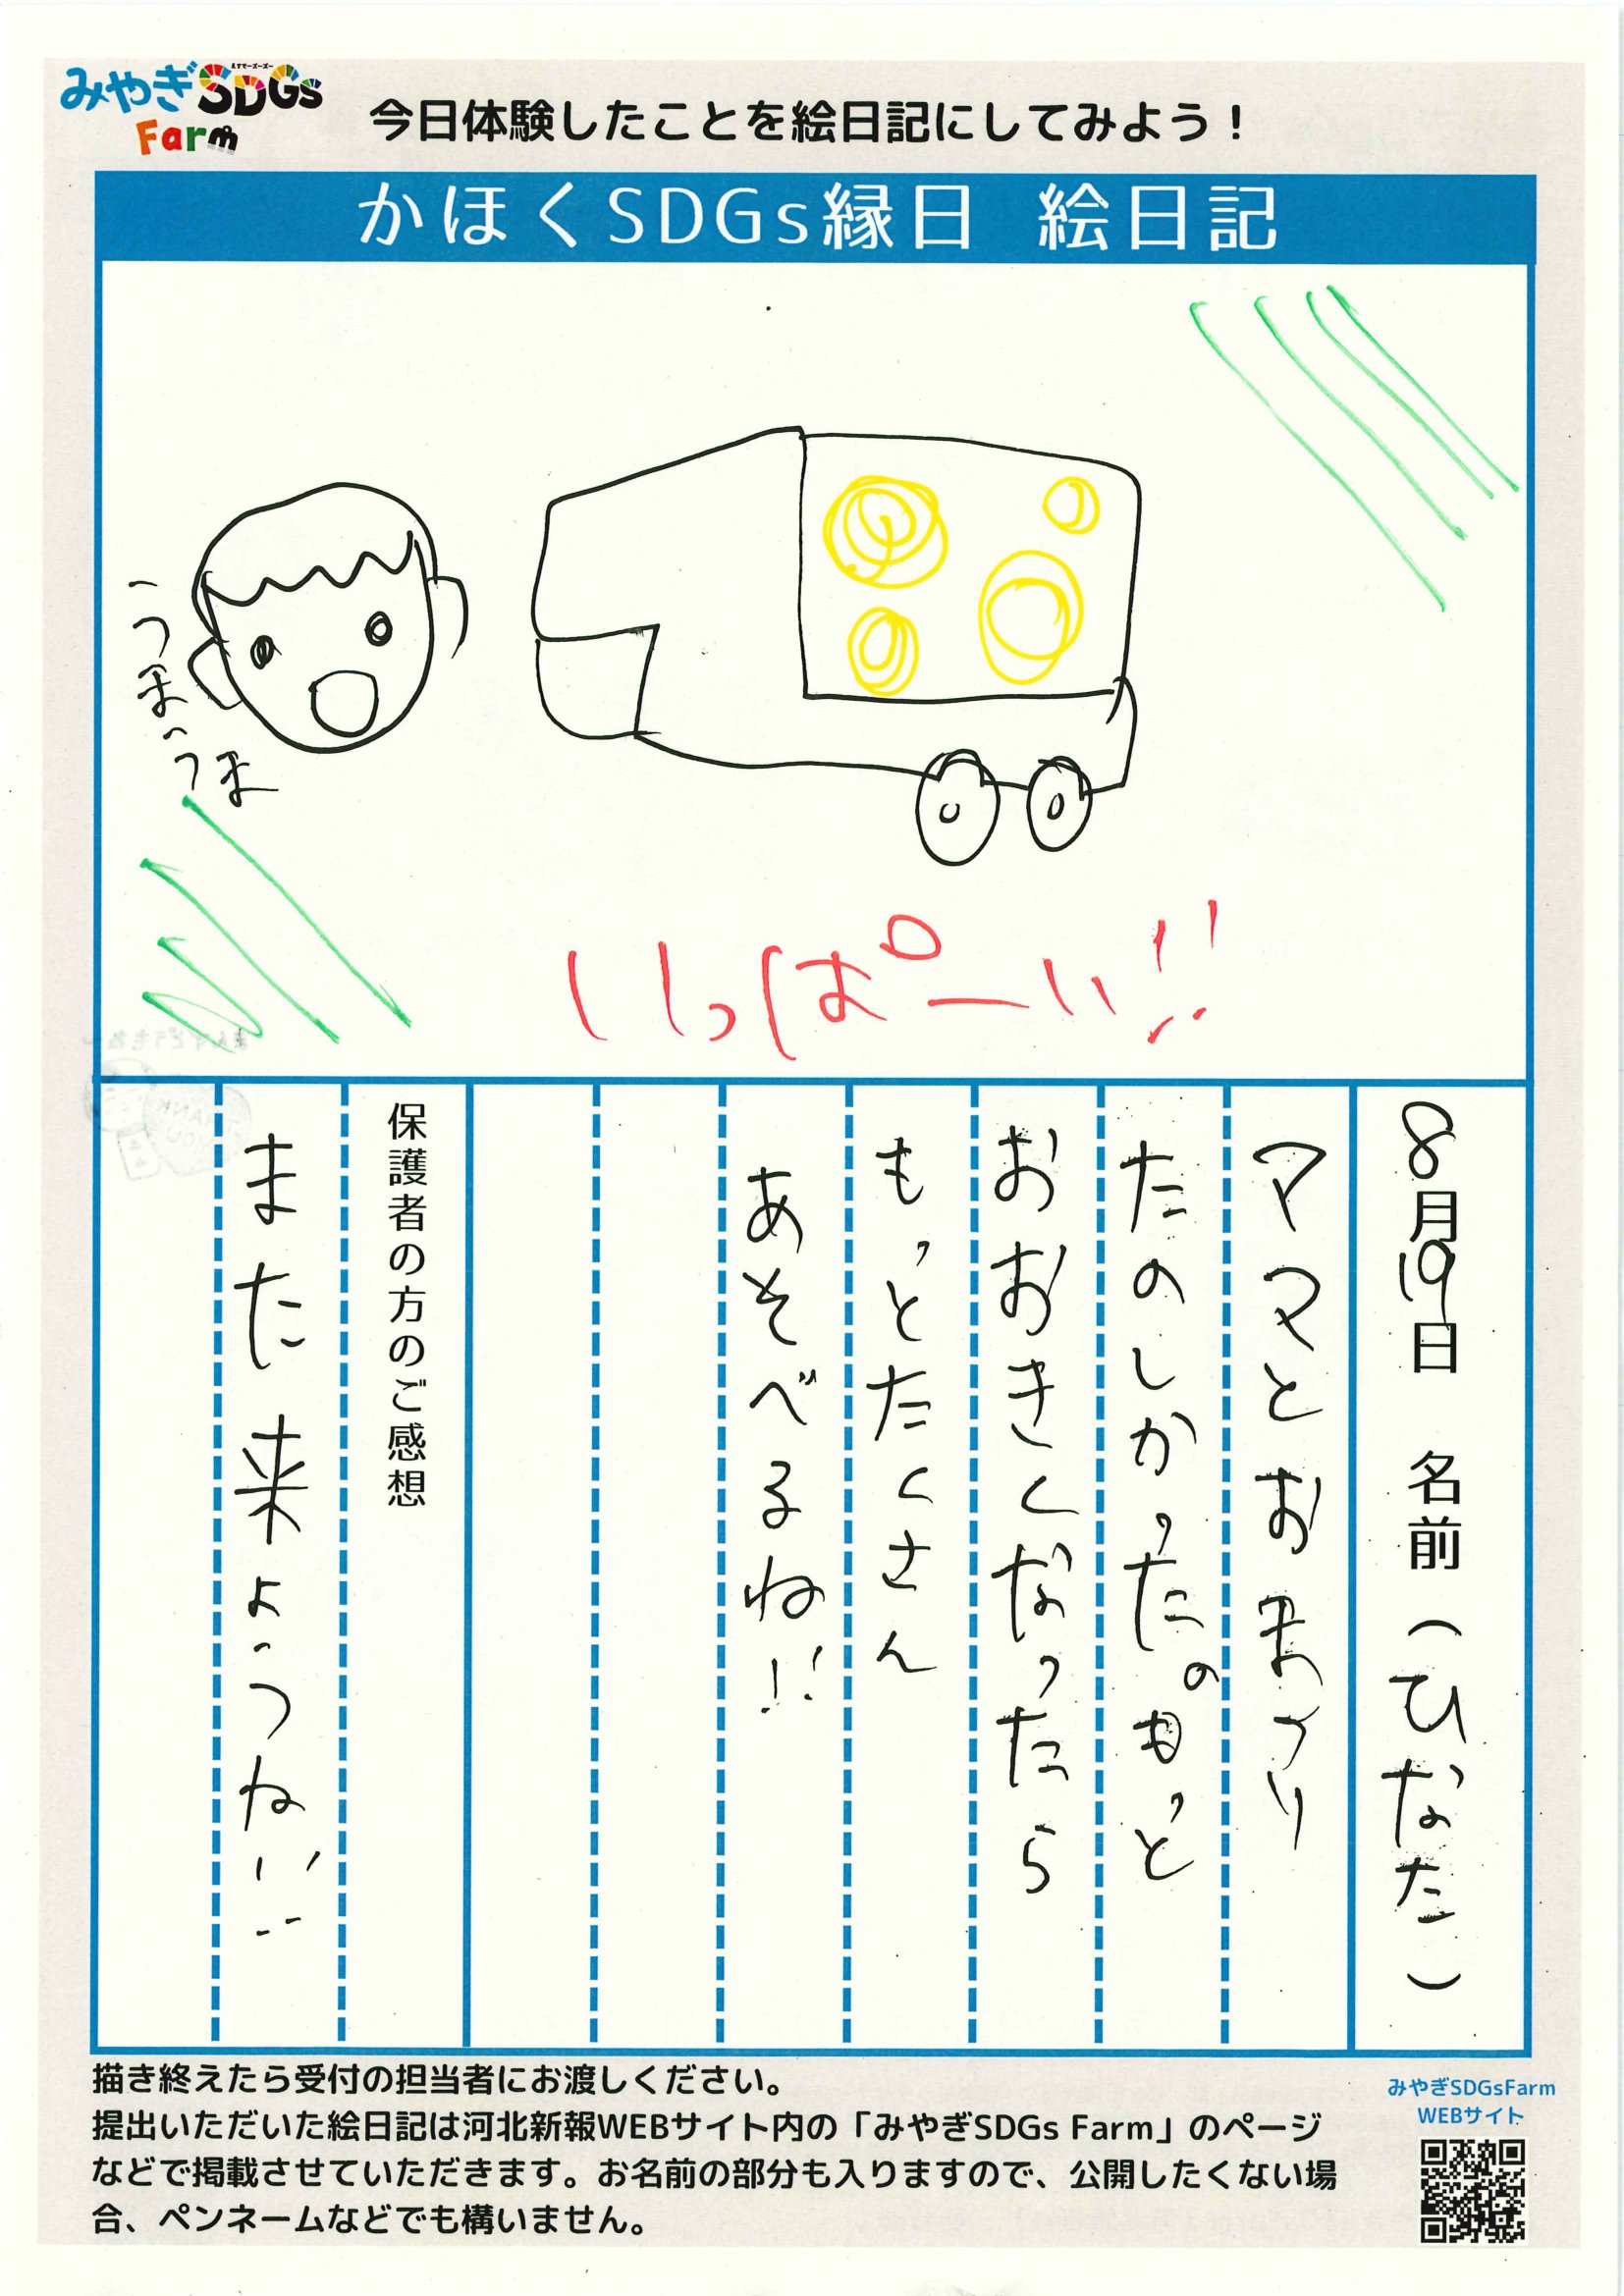 みやぎSDGs
エスディージーズ
Farm
今日体験したことを絵日記にしてみよう！
かほくSDGs縁日 絵日記
うま
うま
いっぱーい!!
8月19日 名前（ひなた）
ママとおまつり
たのしかった。もっと
おおきくなったら
もっとたくさん
あそべるね!!
保護者の方のご感想
また来ようね!!
描き終えたら受付の担当者にお渡しください。
提出いただいた絵日記は河北新報WEBサイト内の「みやぎSDGs Farm」のページ
などで掲載させていただきます。お名前の部分も入りますので、公開したくない場
合、ペンネームなどでも構いません。
みやぎSDGsFarm
WEBサイト